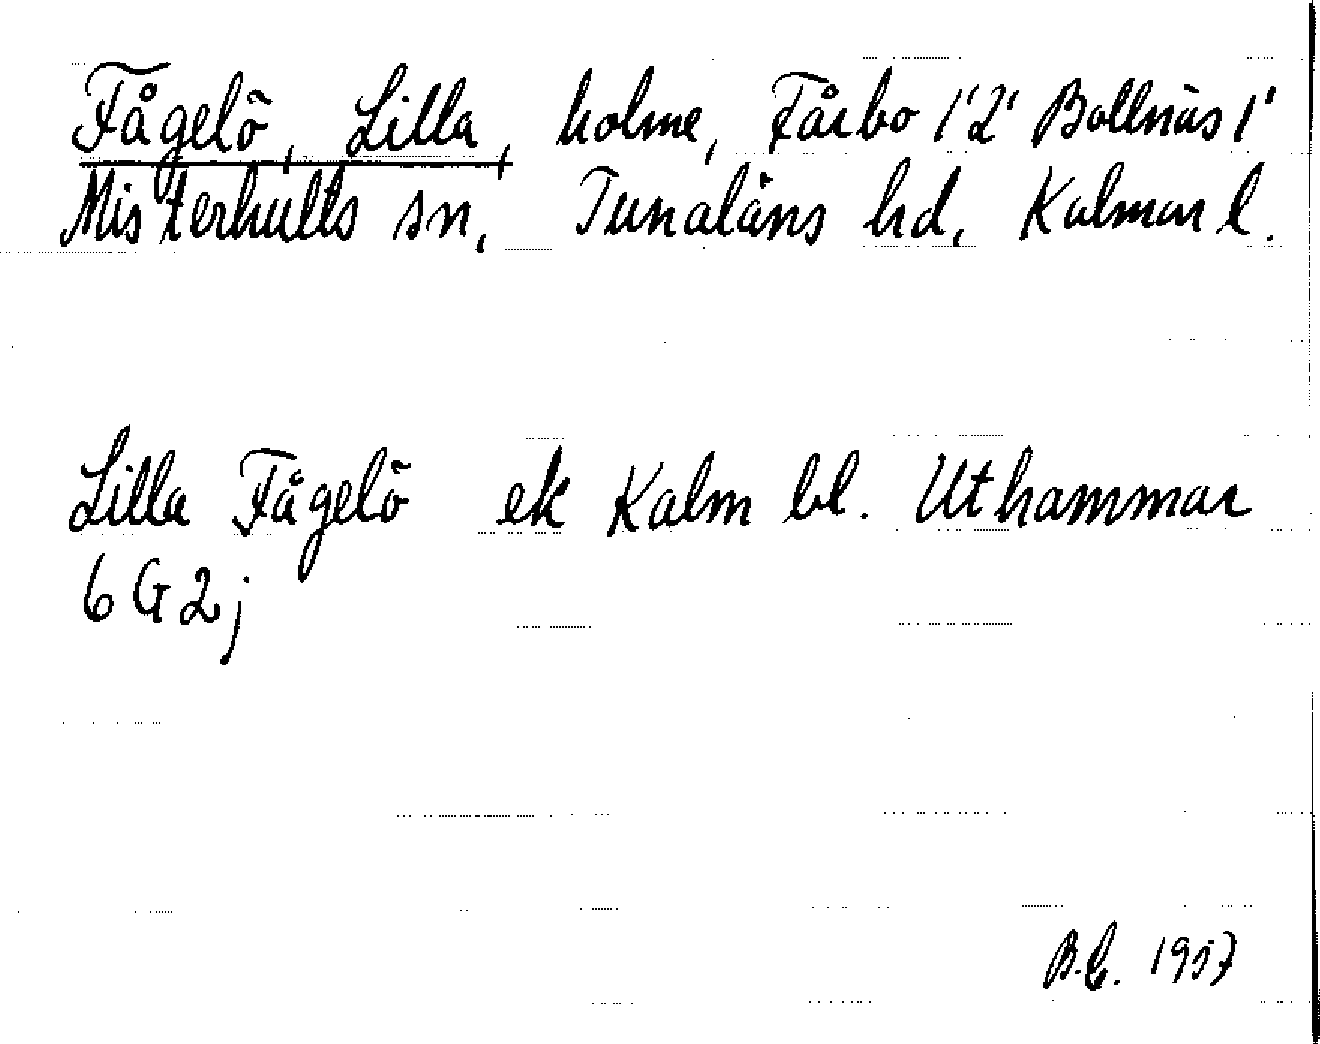 Fågelö, Lilla, holme, Fårbo 1'2' Bollnäs 1'
Misterhults sn, Tunaläns hd, Kalmar l.
Lilla Fågelö ek Kalm bl. Uthammar
6 G 2 j
1957